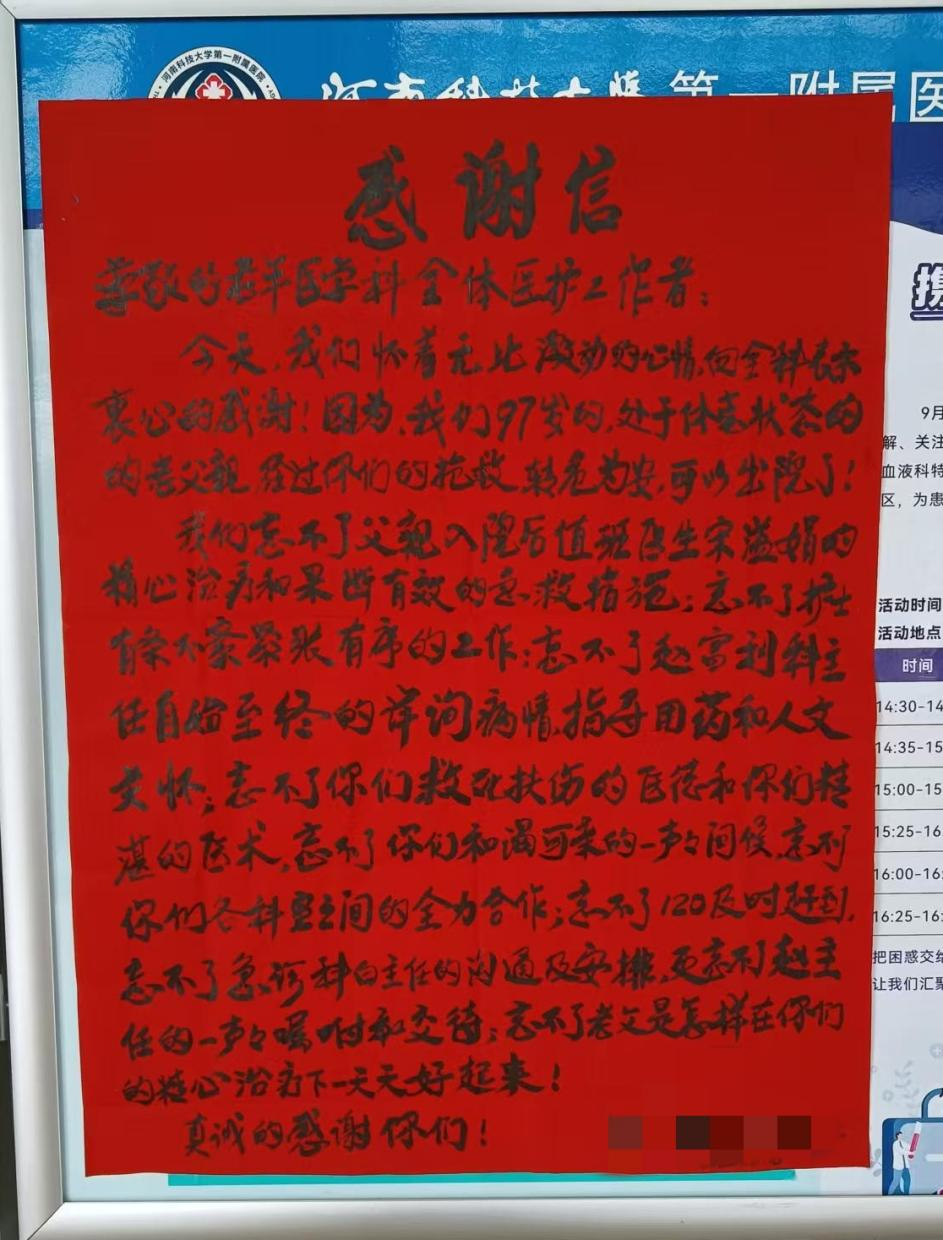 河南科技大学第一附属医院
河南科技大学 第一附属医
感谢信
尊敬的老年医学科全体医护工作者：
今天，我们怀着无比激动的心情，向全科表示
衷心的感谢！因为，我们97岁的，处于休克状态的
的老父亲，经过你们的抢救，转危为安，可以出院了！
我们忘不了父亲入院后值班医生宋益娟的
精心治疗和果断有效的急救指施；忘不了护士
有条不紊紧张有序的工作；忘不了赵富利科主
任自始至终的详询病情，指导用药和人文
关怀；忘不了你们救死扶伤的医德和你们精
湛的医术，忘不了你们和谒可亲的一声々问候，忘不了
你们各科室之间的全力合作；忘不了120及时赶到，
忘不了急诊科白主任的沟通及安排，更忘不了赵主
任的一声々嘱咐和交待；忘不了老父是怎样在你们
的精心治疗下一天天好起来！
真诚的感谢你们！
携
9月
解、关注
血液科特
区，为患
活动时间
活动地点
时间
14:30-14
14:35-15
15:00-15
15:25-16
16:00-16:
16:25-16:
把困惑交给
让我们汇聚